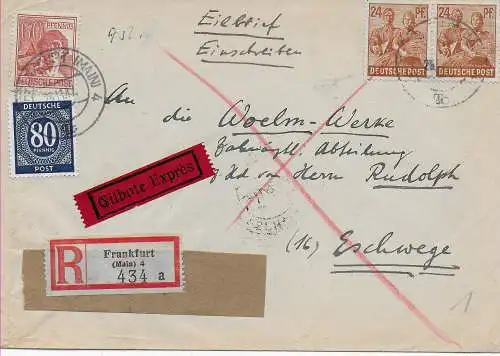 Eilbrief
Einschreiben
DEUTSCHE POST
24 PF
DEUTSCHE POST
24 PF
DEUTSCHE POST
(MAIN) 4
DEUTSCHE
80
PFENNIG
POST
An die Woelm-Werke
Abteilung
von Herrn Rudolph
(16) Eschwege
Eilbote Exprès
R
Frankfurt
(Main) 4
434 a
1